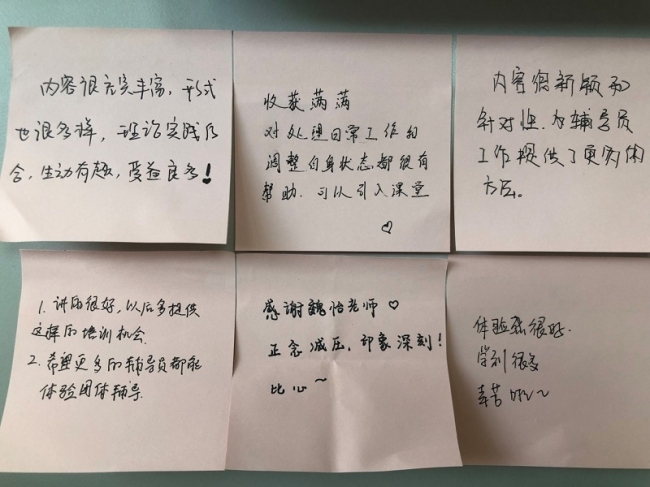 内容很充实丰富，形式
也很多样，理论实践结
合，生动有趣，受益良多！
收获满满
对处理日常工作和
调整自身状态都很有
帮助．可以引入课堂
♡
内容很新颖和
针对性．为辅导员
工作提供了更具体
方应。
1. 讲的很好，以后多提供
这样的培训机会．
2. 希望更多的辅导员都能
体验团体辅导．
感谢魏怡老师 ♡
正念减压，印象深刻！
比心～
体验感很好．
学到很多
辛苦啦～